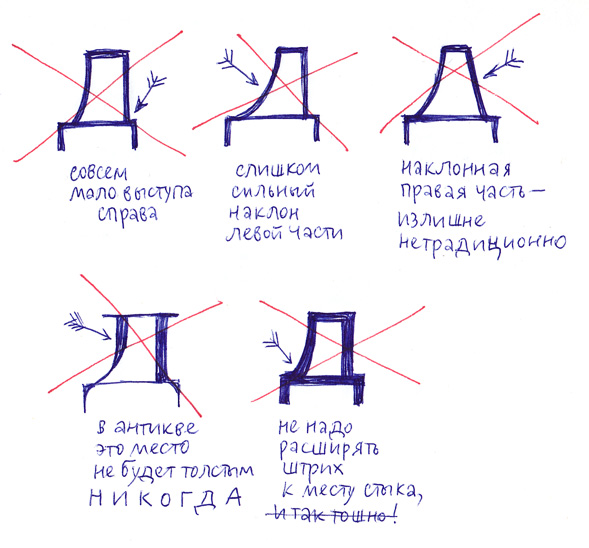 совсем
мало выступа
справа
слишком
сильный
наклон
левой части
наклонная
правая часть –
излишне
нетрадиционно
в антикве
это место
не будет толстым
НИКОГДА
не надо
расширять
штрих
к месту стыка,
и так тошно!